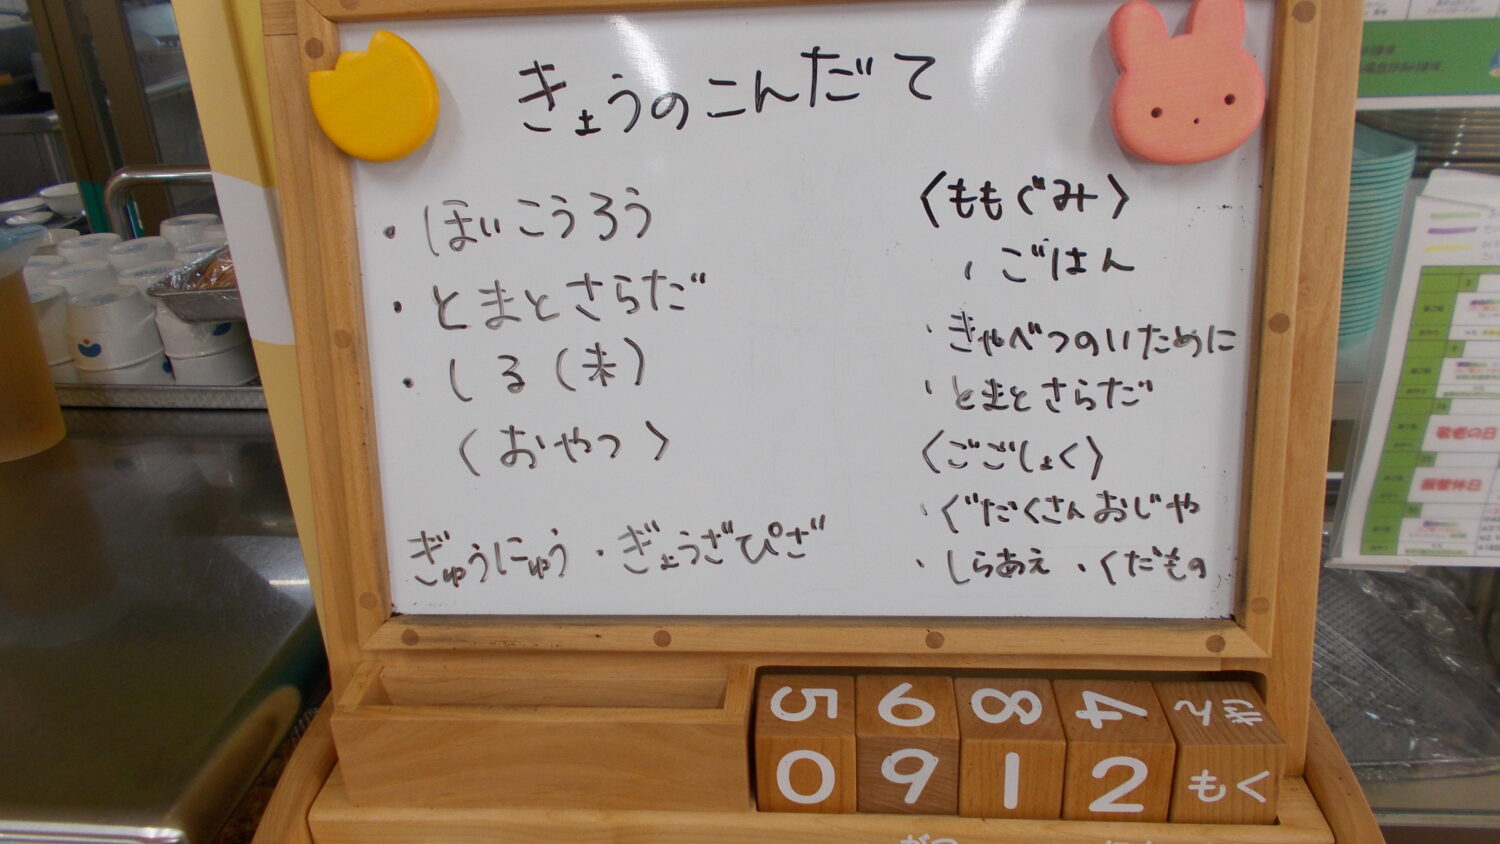 きょうのこんだて
・ほいこうろう
・とまとさらだ
・しる(米)
〈おやつ〉
ぎゅうにゅう・ぎょうざぴざ
〈ももぐみ〉
・ごはん
・きゃべつのいために
・とまとさらだ
〈ごごしょく〉
・ぐだくさんおじや
・しらあえ・くだもの
5 6 8 4 きん
0 9 1 2 もく
がつ
敬老の日
振替休日